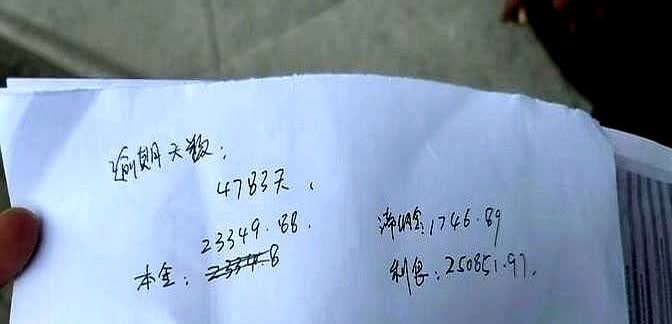 逾期天数：
4783天.
23349.88.
本金：
滞纳金：1746.89
利息：250851.97.